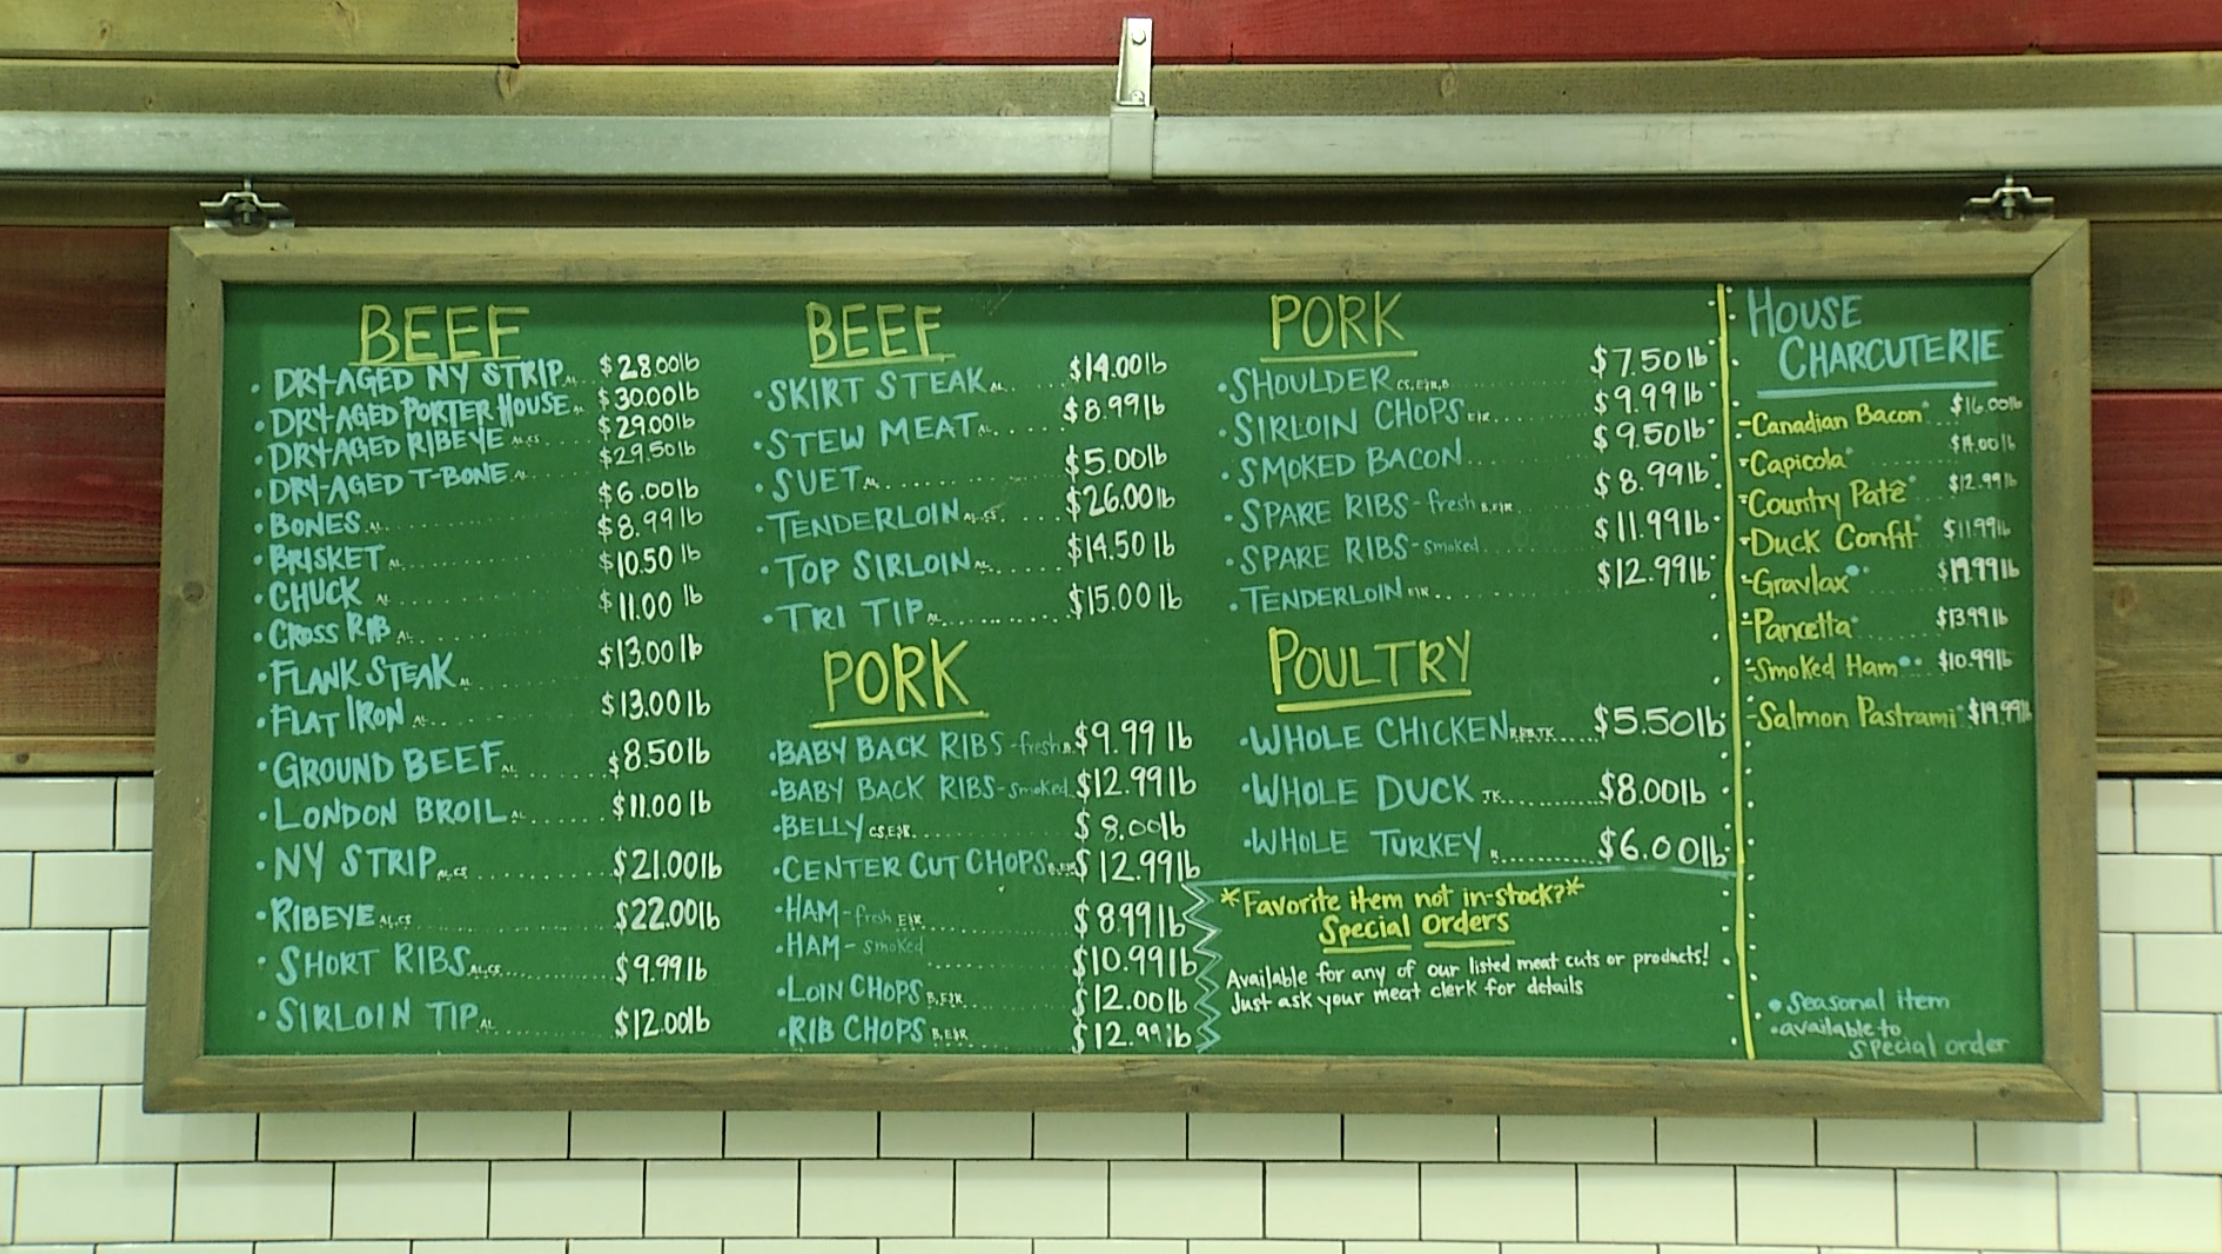 BEEF
• DRY-AGED NY STRIP AL... $28.00lb
• DRY-AGED PORTER HOUSE AL $30.00lb
• DRY-AGED RIBEYE AL,CS .... $29.00lb
• DRY-AGED T-BONE AL ..... $29.50lb
• BONES AL ........ $6.00lb
• BRISKET AL ........ $8.99lb
• CHUCK AL ........ $10.50 lb
• CROSS RIB AL ........ $11.00 lb
• FLANK STEAK AL ........ $13.00 lb
• FLAT IRON AL ........ $13.00lb
• GROUND BEEF AL ....... $8.50lb
• LONDON BROIL AL ....... $11.00 lb
• NY STRIP AL,CS ........ $21.00lb
• RIBEYE AL,CS ........ $22.00lb
• SHORT RIBS AL,CS ........ $9.99lb
• SIRLOIN TIP AL ........ $12.00lb
BEEF
• SKIRT STEAK AL ...... $14.00lb
• STEW MEAT AL ...... $8.99lb
• SUET AL .......... $5.00lb
• TENDERLOIN AL,CS ..... $26.00lb
• TOP SIRLOIN AL ...... $14.50 lb
• TRI TIP AL .......... $15.00 lb
PORK
• BABY BACK RIBS - fresh B. $9.99 lb
• BABY BACK RIBS - smoked.. $12.99lb
• BELLY CS,E&R ........ $8.00lb
• CENTER CUT CHOPS B,E&R $12.99lb
• HAM - fresh E&R ........ $8.99lb
• HAM - smoked ........ $10.99lb
• LOIN CHOPS B,E&R ...... $12.00lb
• RIB CHOPS B,E&R ...... $12.99lb
PORK
• SHOULDER CS,E&R,B ........ $7.50 lb
• SIRLOIN CHOPS E&R ....... $9.99lb
• SMOKED BACON ........ $9.50lb
• SPARE RIBS - fresh B,E&R ..... $8.99lb
• SPARE RIBS - smoked ....... $11.99lb
• TENDERLOIN E&R ........ $12.99lb
POULTRY
• WHOLE CHICKEN TK ..... $5.50lb
• WHOLE DUCK TK .......... $8.00lb
• WHOLE TURKEY R .......... $6.00lb
*Favorite item not in-stock?*
Special Orders
Available for any of our listed meat cuts or products!
Just ask your meat clerk for details
HOUSE
CHARCUTERIE
- Canadian Bacon • .. $16.00lb
- Capicola • ........ $14.00lb
- Country Patê • .... $12.99lb
- Duck Confit • .... $11.99lb
- Gravlax • • ...... $19.99lb
- Pancetta • ...... $13.99lb
- Smoked Ham • • .. $10.99lb
- Salmon Pastrami • $19.99lb
• Seasonal item
• available to
special order